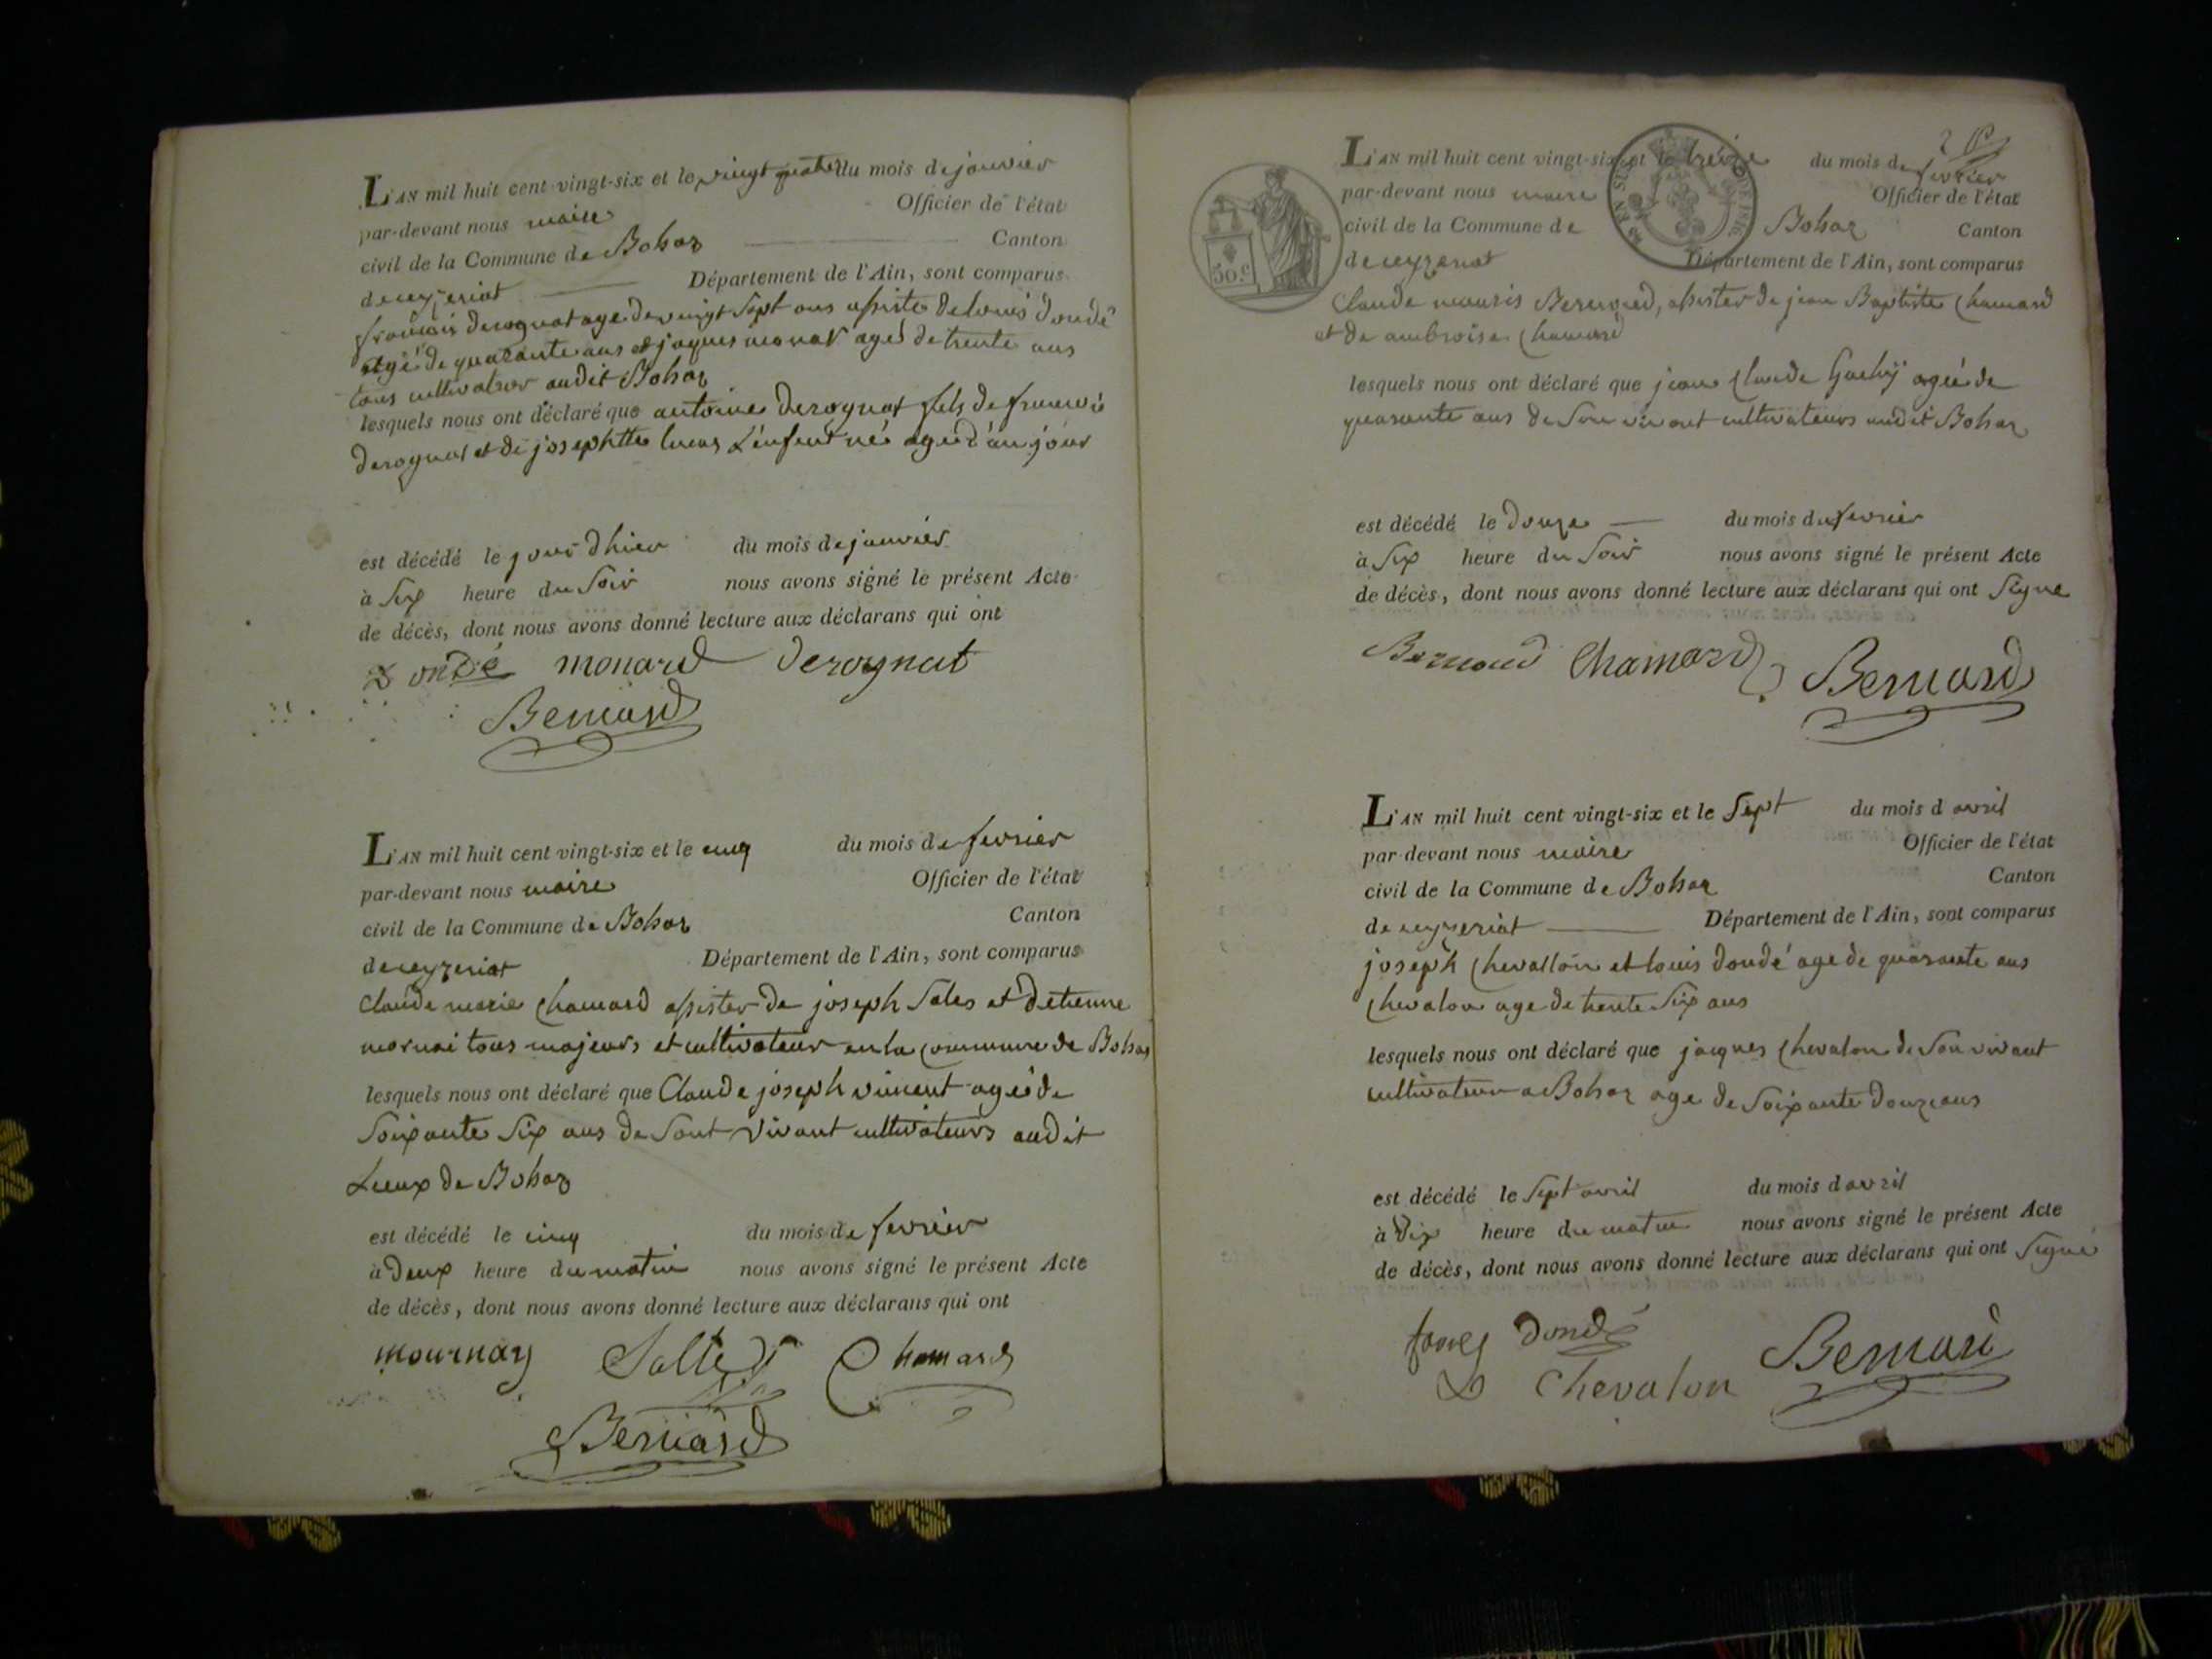 L'AN mil huit cent vingt-six et le vingt quatre du mois de janvier
par-devant nous maire Officier de l'état
civil de la Commune de Bohas Canton
de ceyzeriat Département de l'Ain, sont comparus
françois derognat age de vingt sept ans assiste de louis dondé
agé de quarante ans et jaques monar agé de trente ans
tous cultivateur audit Bohas
lesquels nous ont déclaré que antoine derognat fils de francois
derognat et de josephtte lucas L'enfent né agé d'un jour
est décédé le jour d'hier du mois de janvier
à six heure du soir nous avons signé le présent Acte
de décès, dont nous avons donné lecture aux déclarans qui ont
L ondé monard derognat
Bernard
L'AN mil huit cent vingt-six et le cinq du mois de fevrier
par-devant nous maire Officier de l'état
civil de la Commune de Bohas Canton
de ceyzeriat Département de l'Ain, sont comparus
Claude marie Chamard assister de joseph Sales et d'etienne
mornai tous majeurs et cultivateur en la commune de Bohas
lesquels nous ont déclaré que Claude joseph vincent agé de
soixante six ans de sont vivant cultivateurs audit
Lieux de Bohas
est décédé le cinq du mois de fevrier
à deux heure du matin nous avons signé le présent Acte
de décès, dont nous avons donné lecture aux déclarans qui ont
mournay Salles Chamard
Bernard
L'AN mil huit cent vingt-six et le treize du mois de fevrier
par-devant nous maire Officier de l'état
civil de la Commune de Bohas Canton
de ceyzeriat Département de l'Ain, sont comparus
50 c
EN SUS DE 1816
Claude mauris Bernard, assister de jean Baptiste Chamard
et de ambroise Chamard
lesquels nous ont déclaré que jean Claude Gachÿ agé de
quarante ans de son vivant cultivateurs audit Bohas
est décédé le douze du mois de fevrier
à six heure du soir nous avons signé le présent Acte
de décès, dont nous avons donné lecture aux déclarans qui ont signe
Bernard Chamard Bernard
L'AN mil huit cent vingt-six et le sept du mois d avril
par-devant nous maire Officier de l'état
civil de la Commune de Bohas Canton
de ceyzeriat Département de l'Ain, sont comparus
joseph Chevallon et louis dondé age de quarante ans
Chevalon age de trente six ans
lesquels nous ont déclaré que jacques Chevalon de son vivant
cultivateur a Bohas age de soixante douze ans
est décédé le sept avril du mois d avril
à dix heure du matin nous avons signé le présent Acte
de décès, dont nous avons donné lecture aux déclarans qui ont signé
Dondé
Chevalon Bernard